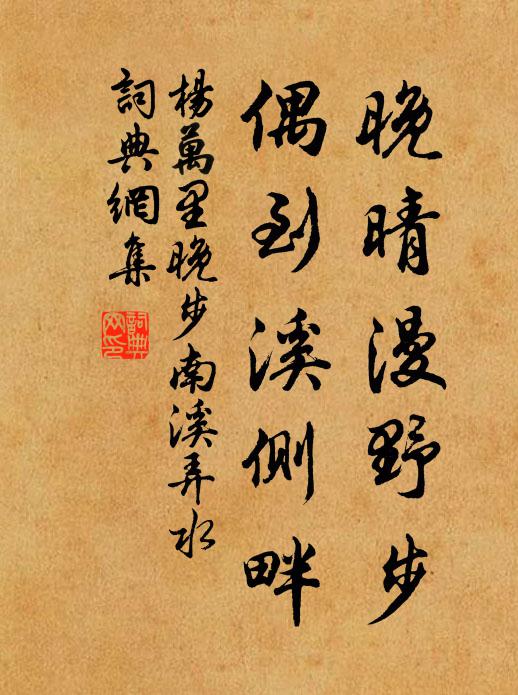 晚晴漫野步
偶到溪側畔
楊萬里晚步南溪弄水
詞典網集
詞典網印